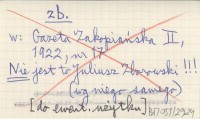 zb.
w: Gazeta Zakopiańska II,
1922, nr 17
Nie jest to Juliusz Zborowski !!!
(wg niego samego)
[do ewent. użytku]